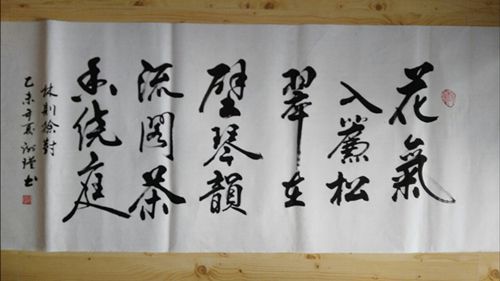 花氣
入簾松
翠在
壁琴韻
流閣茶
香绕庭
林則徐對
乙未年夏书